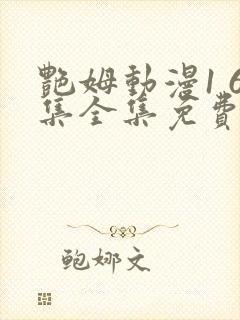 艷姆動漫1 6
集全集免費
鲍娜文